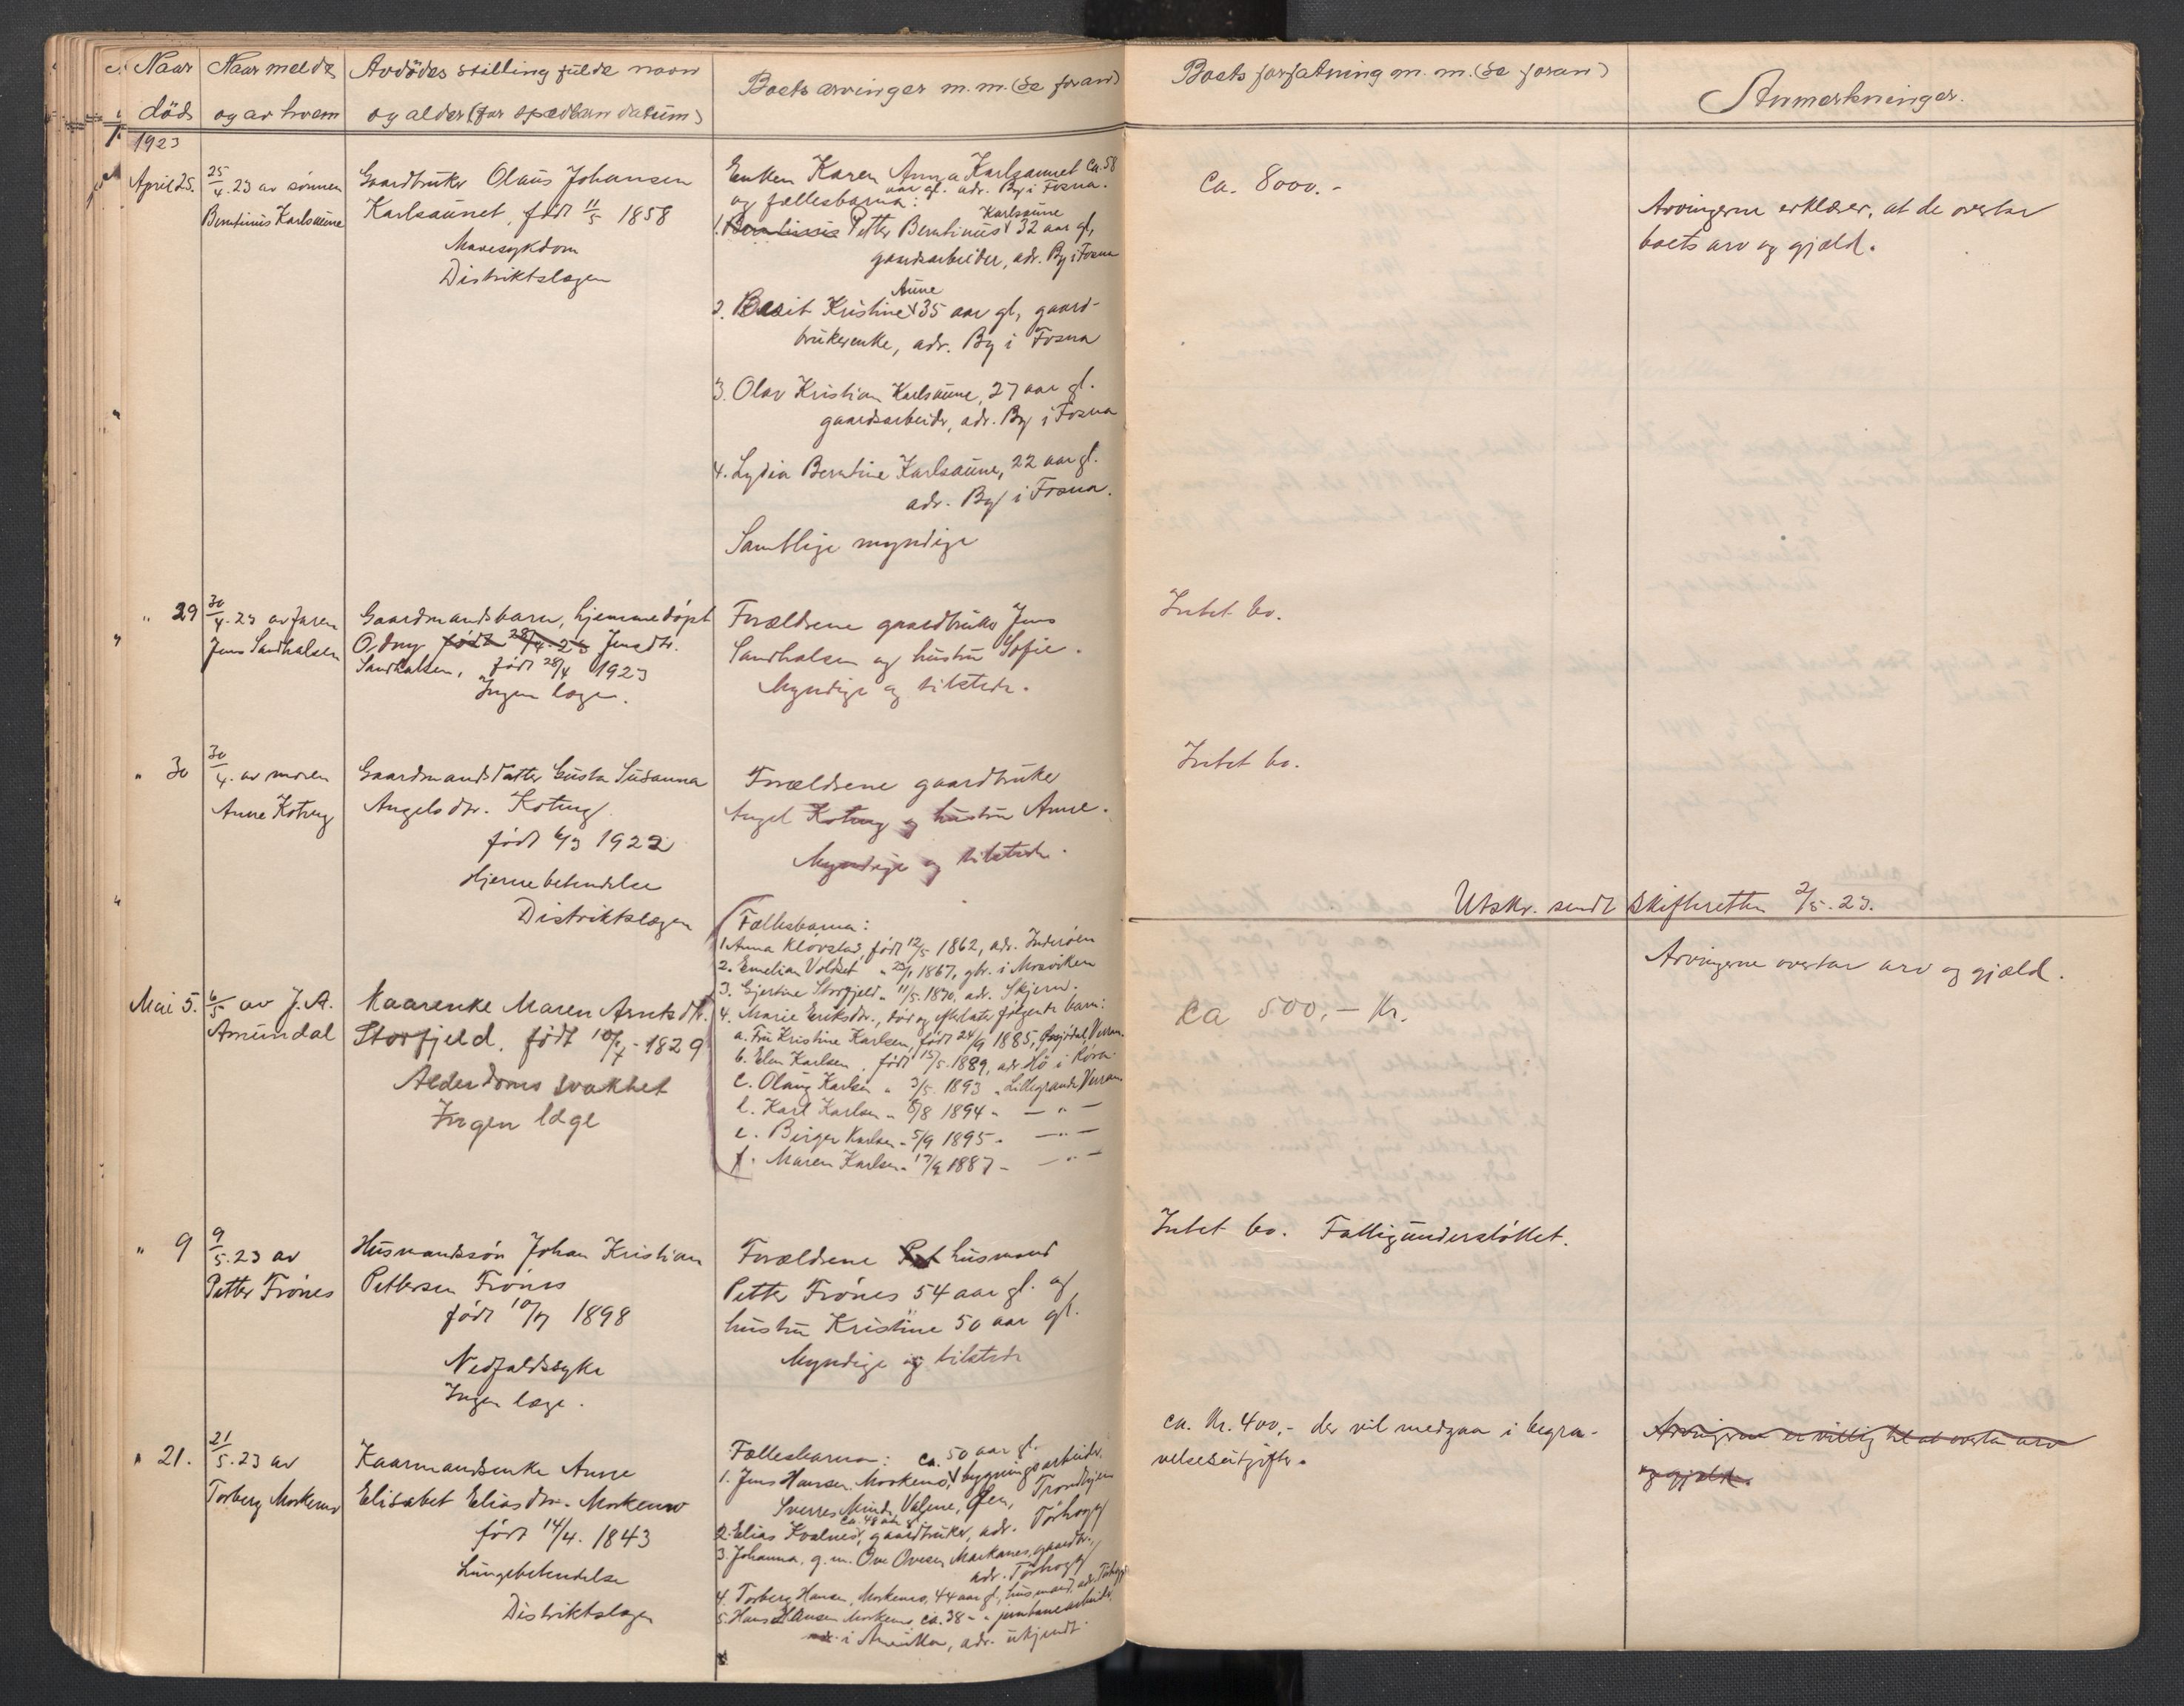 Naar død
Naar meldt og av hvem
Avdødes stilling fulde navn og alder (for spædbarn datum)
Boets arvinger m.m. (se foran)
Boets forfatning m. m. (se foran)
Anmerkninger.
1923
April 25.
25/4. 23 av sønnen
Berntinus Karlsaune
Gaardbruker Olaus Johansen
Karlsaunet, født 11/5 1858
Mavesykdom
Distriktslægen
Enken Karen Anna Karlsaunet ca. 58
aar gl. adr. By i Fosna.
og fællesbarna:
1. Berntinus Petter Berntinus Karlsaune 32 aar gl,
gaardsarbeider, adr. By i Fosna
2. Berit Kristine Aune 35 aar gl, gaard-
brukerenke, adr. By i Fosna
3. Olav Kristian Karlsaune, 27 aar gl.
gaardsarbeider, adr. By i Fosna
4. Lydia Berntine Karlsaune, 22 aar gl.
adr. By i Fosna.
Samtlige myndige
Ca. 8000.-
Arvingerne erklærer, at de overtar
boets arv og gjæld.
" 29
30/4. 23 av faren
Jens Sandhalsen
Gaardmandsbarn, hjemmedøpt
Odny født 28/4-23 Jensdtr.
Sandhalsen, født 28/4 1923
Ingen læge.
Forældrene gaardbruker Jens
Sandhalsen og hustru Sofie.
Myndige og tilstede.
Intet bo.
" 30
30/4. av moren
Anne Koteng
Gaardmandsdatter Gusta Susanna
Angelsdtr. Koteng
født 6/3 1922
Hjernebetendelse
Distriktslægen
Forældrene gaardbruker
Angel Koteng og hustru Anne.
Myndige og tilstede.
Intet bo.
Utskr. sendt skifteretten 2/5. 23.
Mai 5.
6/5 av J. A.
Amundal
Kaarenke Maren Arntsdtr.
Storfjeld. født 10/7-1829
Alderdoms svakhet
Ingen læge
Fællesbarna:
1. Anna Kløvstad, født 12/5 1862, adr. Inderøen
2. Emelian Voldset " 23/1 1867, gbr. i Mosviken
3. Gjertine Storfjeld " 11/5. 1870, adr. Skjern.
4. Marie Eriksdtr., død og efterlater følgende barn:
a. Fru Kristine Karlsen, født 24/9 1885, Verran.
b. Elen Karlsen, født 15/5. 1889, adr. Hø i Røra.
c. Olaug Karlsen " 3/5. 1893 " Lillegrande Verran.
d. Karl Karlsen " 8/8 1894 " — " —
e. Birger Karlsen - 5/9 1895 - — " —
f. Maren Karlsen - 17/9 1887 - — " —
Ca 500,- Kr.
Arvingerne overtar arv og gjæld.
" 9
9/5. 23 av
Petter Frønes
Husmandssøn Johan Kristian
Pettersen Frønes
født 10/7 1898
Nedfaldssyke
Ingen læge.
Forældrene Pet husmand
Petter Frønes 54 aar gl. og
hustru Kristine 50 aar gl.
Myndige og tilstede
Intet bo. Fattigunderstøttet.
" 21.
21/5. 23 av
Torberg Morkemo
Kaarmandsenke Anne
Elisabet Eliasdtr. Morkemo
født 14/4. 1843
Lungebetendelse
Distriktslægen
Fællesbarna: ca. 50 aar gl.
1. Jens Hansen Morkemo, bygningsarbeider,
Sverres Minde, Valene, Øen, Trondhjem
2. Elias Kvalnes, ca. 48 aar gl. gaardbruker, adr. Tørhogg
3. Johanna, g. m. Ove Ovesen Markanes, gaardbr.,
adr. Tørhogg
4. Torberg Hansen Morkemo, 44 aar gl, husmand, adr. Tørhogg
5. Hans Hansen Morkemo, ca. 38 - " jernbanearbeider,
i Amerika, adr. ukjendt.
ca. Kr. 400,- der vil medgaa i begra-
velsesutgifter.
Arvingerne er villig til at overta arv
og gjæld.